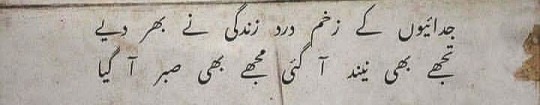 جدائیوں کے زخم درد زندگی نے بھر دیے
تجھے بھی نیند آ گئی مجھے بھی صبر آ گیا